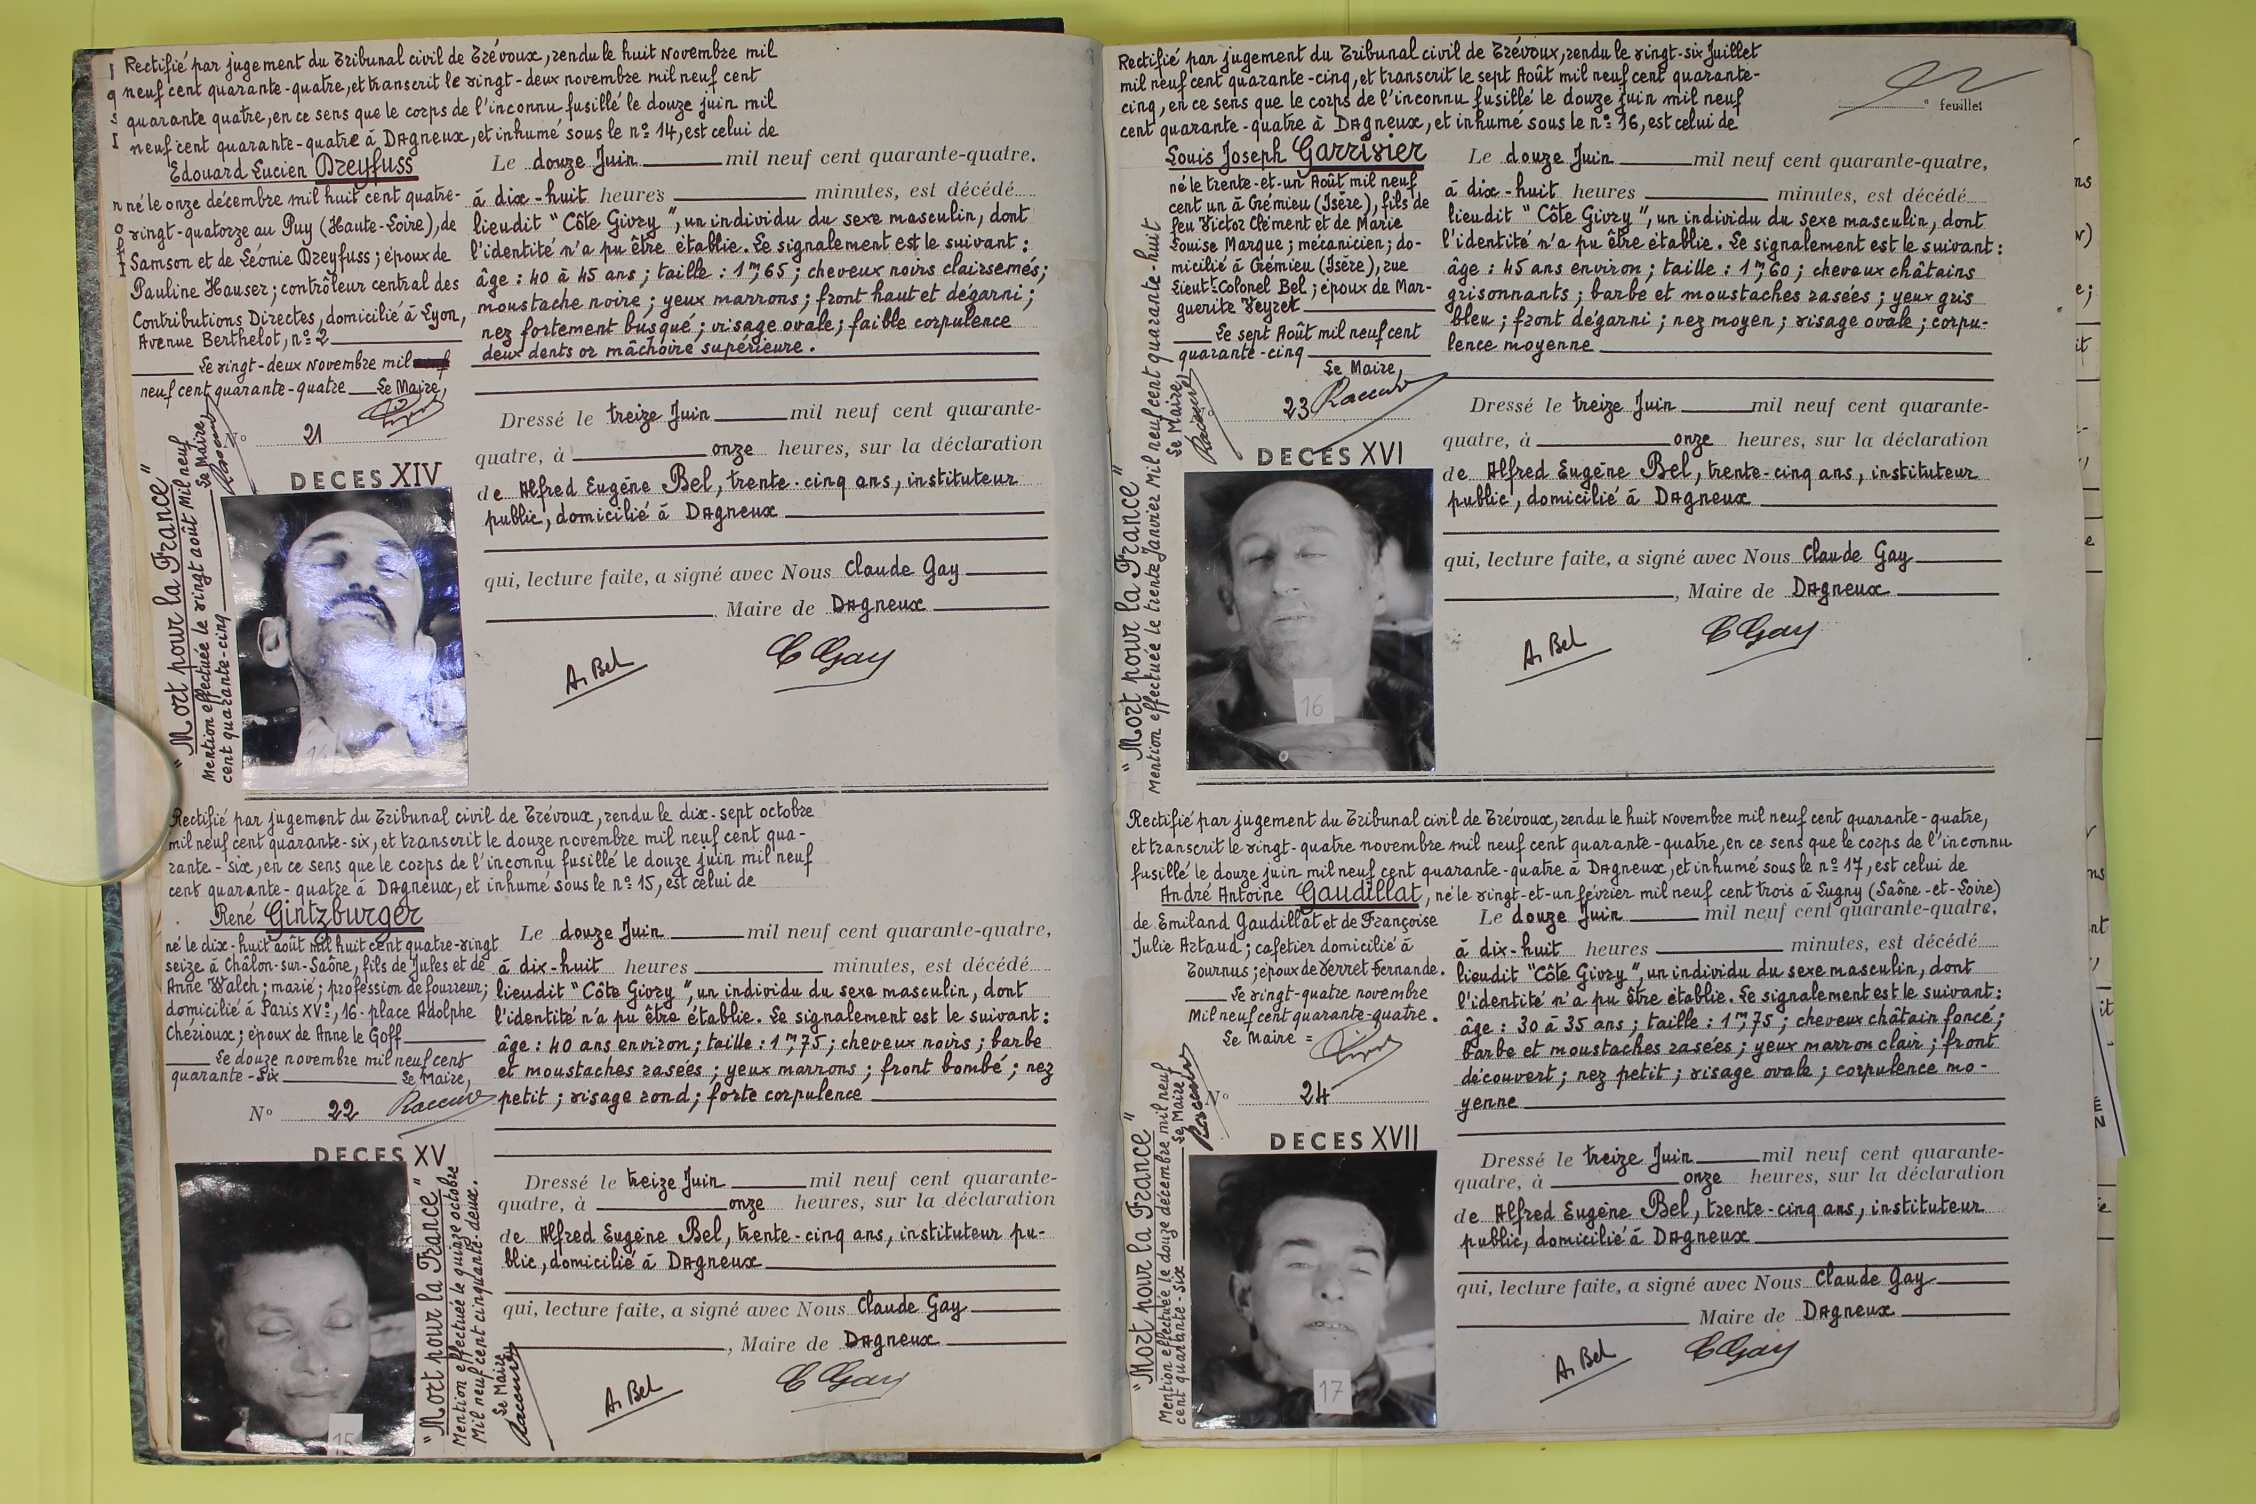 Rectifié par jugement du Tribunal civil de Trévoux, rendu le huit novembre mil
neuf cent quarante-quatre, et transcrit le vingt-deux novembre mil neuf cent
quarante quatre, en ce sens que le corps de l'inconnu fusillé le douze juin mil
neuf cent quarante-quatre à Dagneux, et inhumé sous le no 14, est celui de
Edouard Lucien Dreyfuss
né le onze décembre mil huit cent quatre-
vingt-quatorze au Puy (Haute-Loire), de
Samson et de Léonie Dreyfuss ; époux de
Pauline Hauser ; contrôleur central des
Contributions Directes, domicilié à Lyon,
Avenue Berthelot, no 2
Le vingt-deux novembre mil
neuf cent quarante-quatre Le Maire,
No 21
DECES XIV
"Mort pour la France"
Mention effectuée le vingt août mil neuf
cent quarante-cinq Le Maire,
14
Le douze Juin mil neuf cent quarante-quatre.
à dix-huit heures minutes, est décédé
lieudit "Côte Givry", un individu du sexe masculin, dont
l'identité n'a pu être établie. Le signalement est le suivant :
âge : 40 à 45 ans ; taille : 1m,65 ; cheveux noirs clairsemés ;
moustache noire ; yeux marrons ; front haut et dégarni ;
nez fortement busqué ; visage ovale ; faible corpulence
deux dents or mâchoire supérieure.
Dressé le treize Juin mil neuf cent quarante-
quatre, à onze heures, sur la déclaration
de Alfred Eugène Bel, trente-cinq ans, instituteur
public, domicilié à Dagneux
qui, lecture faite, a signé avec Nous Claude Gay
, Maire de Dagneux
A. Bel C Gay
Rectifié par jugement du Tribunal civil de Trévoux, rendu le dix-sept octobre
mil neuf cent quarante-six, et transcrit le douze novembre mil neuf cent qua-
rante-six, en ce sens que le corps de l'inconnu fusillé le douze juin mil neuf
cent quarante-quatre à Dagneux, et inhumé sous le no 15, est celui de
René Gintzburger
né le dix-huit août mil huit cent quatre-vingt
seize à Châlon-sur-Saône, fils de Jules et de
Anne Walch ; marié ; profession de fourreur ;
domicilié à Paris XVe, 16 place Adolphe
Chérioux ; époux de Anne le Goff
Le douze novembre mil neuf cent
quarante-six Le Maire,
No 22
DECES XV
"Mort pour la France"
Mention effectuée le quinze octobre
Mil neuf cent cinquante-deux.
Le Maire
15
Le douze Juin mil neuf cent quarante-quatre,
à dix-huit heures minutes, est décédé
lieudit "Côte Givry", un individu du sexe masculin, dont
l'identité n'a pu être établie. Le signalement est le suivant :
âge : 40 ans environ ; taille : 1m,75 ; cheveux noirs ; barbe
et moustaches rasées ; yeux marrons ; front bombé ; nez
petit ; visage rond ; forte corpulence
Dressé le treize Juin mil neuf cent quarante-
quatre, à onze heures, sur la déclaration
de Alfred Eugène Bel, trente-cinq ans, instituteur pu-
blic, domicilié à Dagneux
qui, lecture faite, a signé avec Nous Claude Gay
, Maire de Dagneux
A. Bel C Gay
Rectifié par jugement du Tribunal civil de Trévoux, rendu le vingt-six Juillet
mil neuf cent quarante-cinq, et transcrit le sept Août mil neuf cent quarante-
cinq, en ce sens que le corps de l'inconnu fusillé le douze juin mil neuf
cent quarante-quatre à Dagneux, et inhumé sous le no 16, est celui de
e feuillet
Louis Joseph Garrivier
né le trente-et-un Août mil neuf
cent un à Crémieu (Isère), fils de
feu Victor Clément et de Marie
Louise Marque ; mécanicien ; do-
micilié à Crémieu (Isère), rue
Lieut-Colonel Bel ; époux de Mar-
guerite Veyret
Le sept Août mil neuf cent
quarante-cinq
Le Maire,
No 23
DECES XVI
"Mort pour la France"
Mention effectuée le trente Janvier Mil neuf cent quarante-huit
Le Maire,
16
Le douze Juin mil neuf cent quarante-quatre,
à dix-huit heures minutes, est décédé
lieudit "Côte Givry", un individu du sexe masculin, dont
l'identité n'a pu être établie. Le signalement est le suivant :
âge : 45 ans environ ; taille : 1m,60 ; cheveux châtains
grisonnants ; barbe et moustaches rasées ; yeux gris
bleu ; front dégarni ; nez moyen ; visage ovale ; corpu-
lence moyenne
Dressé le treize Juin mil neuf cent quarante-
quatre, à onze heures, sur la déclaration
de Alfred Eugène Bel, trente-cinq ans, instituteur
public, domicilié à Dagneux
qui, lecture faite, a signé avec Nous Claude Gay
, Maire de Dagneux
A. Bel C Gay
Rectifié par jugement du Tribunal civil de Trévoux, rendu le huit novembre mil neuf cent quarante-quatre,
et transcrit le vingt-quatre novembre mil neuf cent quarante-quatre, en ce sens que le corps de l'inconnu
fusillé le douze juin mil neuf cent quarante-quatre à Dagneux, et inhumé sous le no 17, est celui de
André Antoine Gaudillat, né le vingt-et-un février mil neuf cent trois à Lugny (Saône-et-Loire)
de Emiland Gaudillat et de Françoise
Julie Artaud ; cafetier domicilié à
Tournus ; époux de Verret Fernande.
Le vingt-quatre novembre
Mil neuf cent quarante-quatre.
Le Maire =
No 24
DECES XVII
"Mort pour la France"
Mention effectuée le douze décembre mil neuf
cent quarante-six Le Maire,
17
Le douze Juin mil neuf cent quarante-quatre,
à dix-huit heures minutes, est décédé
lieudit "Côte Givry", un individu du sexe masculin, dont
l'identité n'a pu être établie. Le signalement est le suivant :
âge : 30 à 35 ans ; taille : 1m,75 ; cheveux châtain foncé ;
barbe et moustaches rasées ; yeux marron clair ; front
découvert ; nez petit ; visage ovale ; corpulence mo-
yenne
Dressé le treize Juin mil neuf cent quarante-
quatre, à onze heures, sur la déclaration
de Alfred Eugène Bel, trente-cinq ans, instituteur
public, domicilié à Dagneux
qui, lecture faite, a signé avec Nous Claude Gay
Maire de Dagneux
A. Bel C Gay